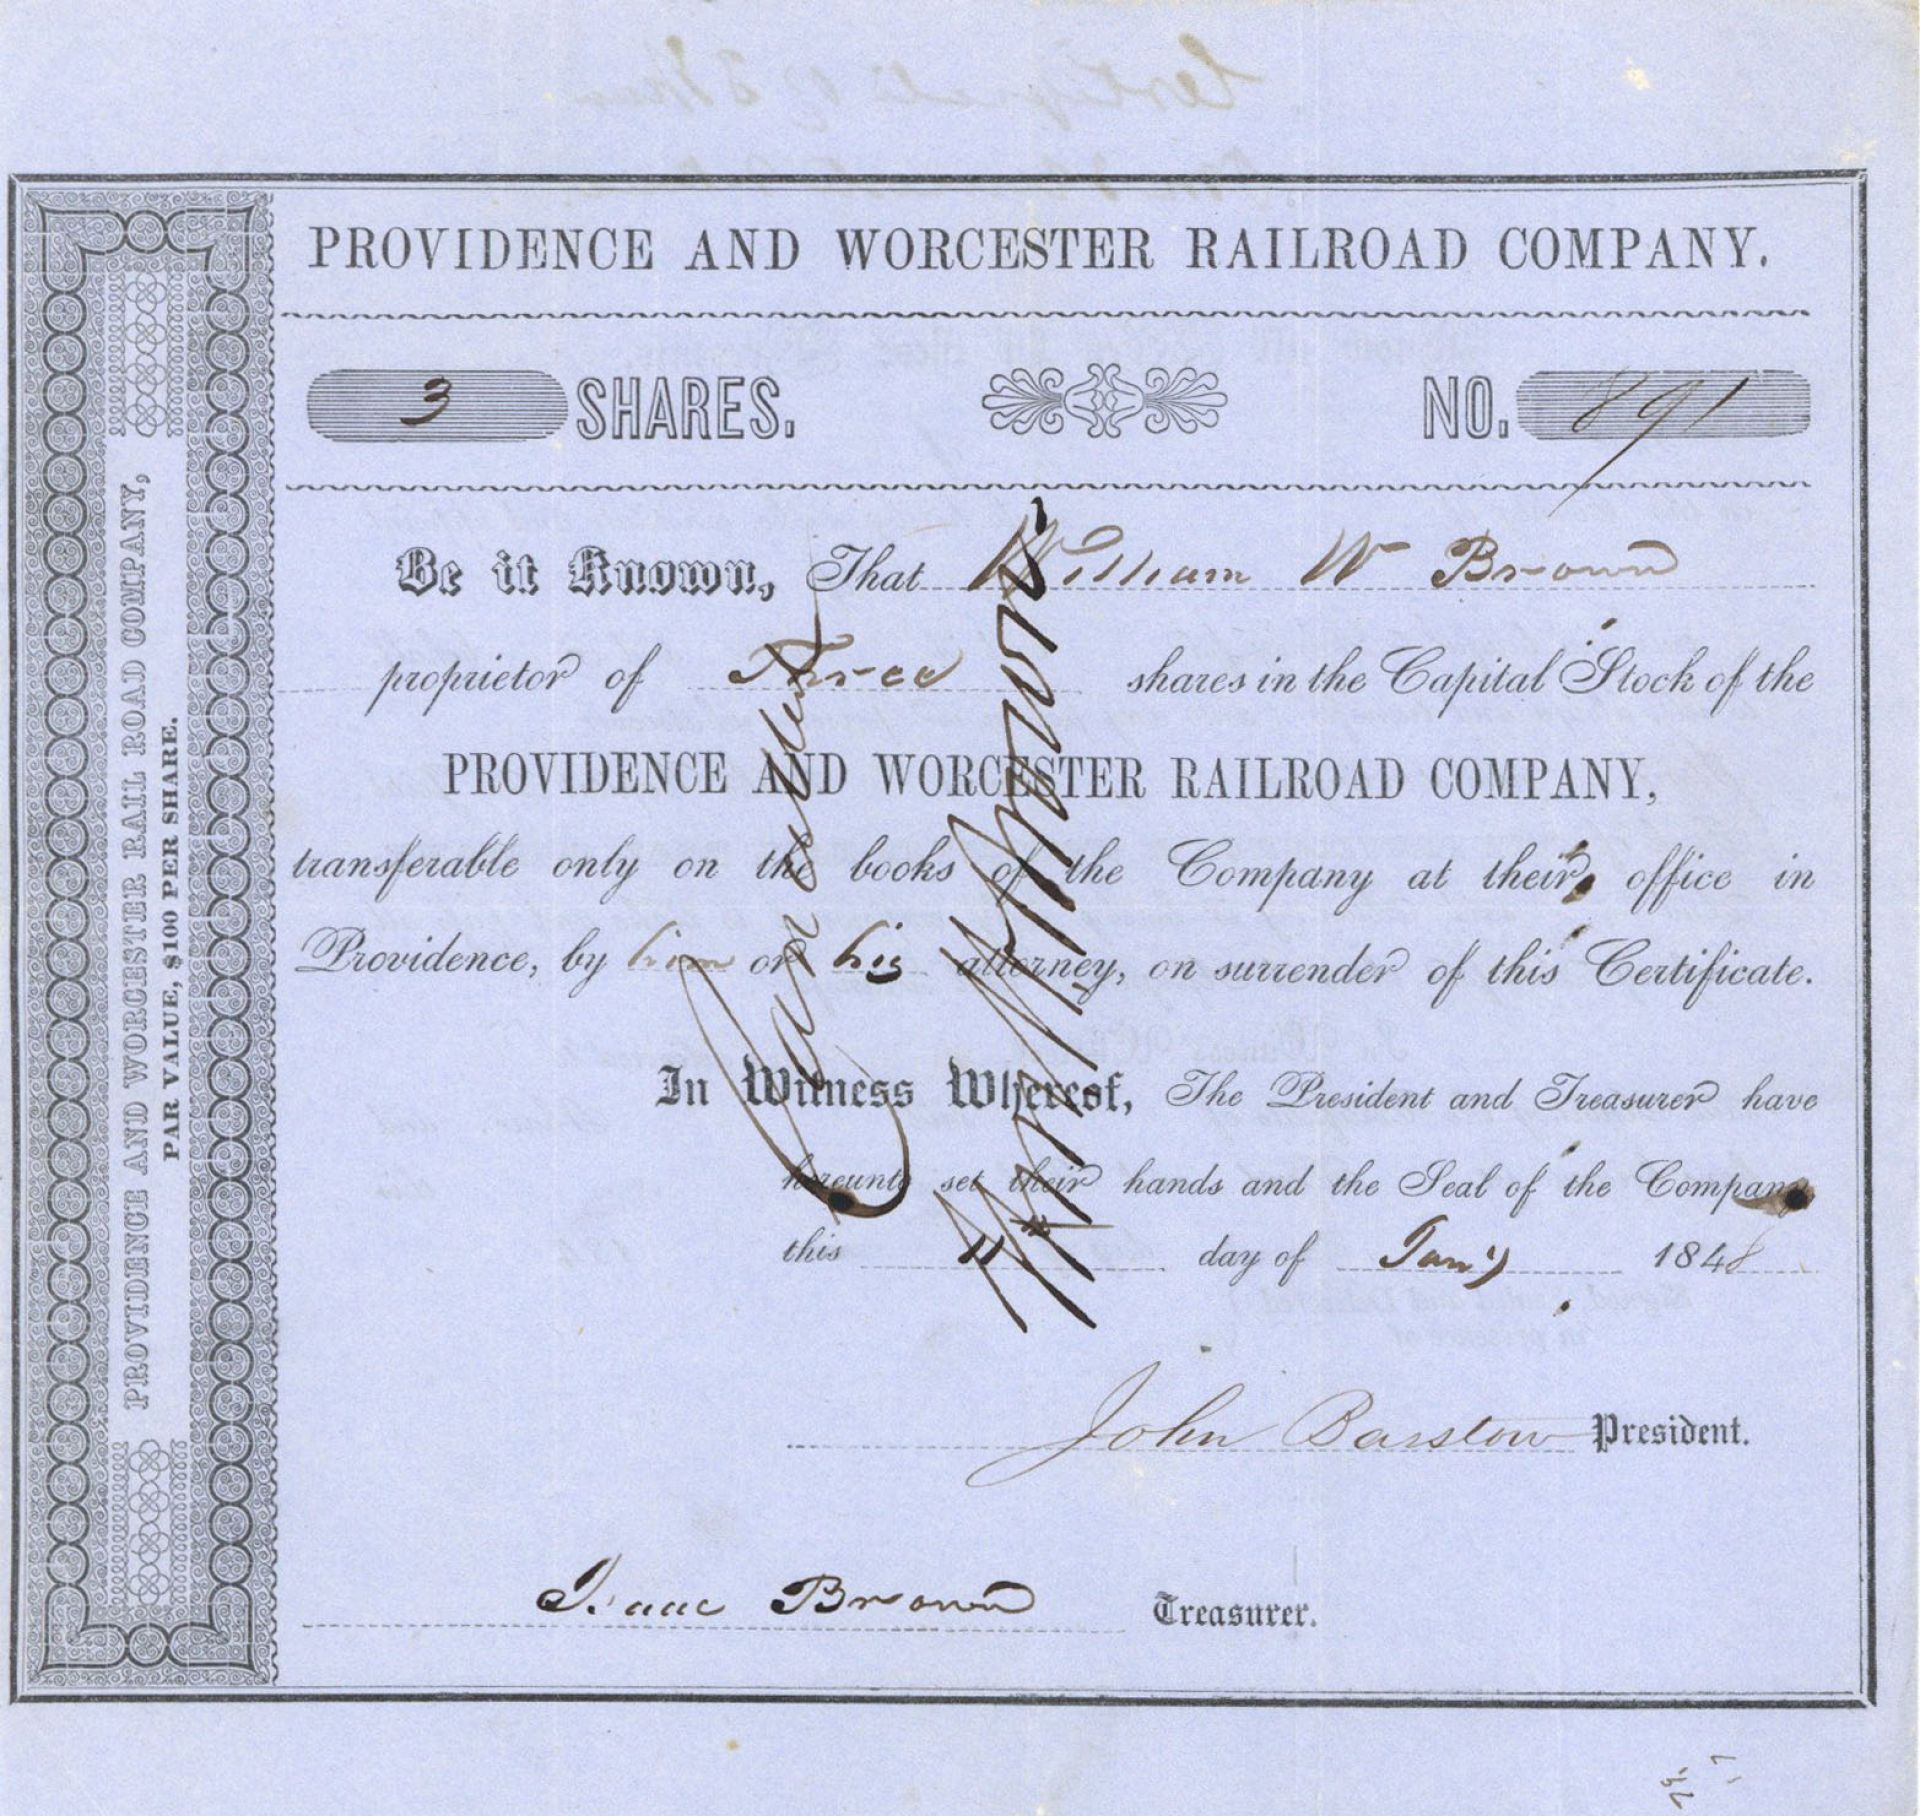 PROVIDENCE AND WORCESTER RAILROAD COMPANY.
3 SHARES. NO. 891
Be it Known, That William W Brown
proprietor of Three shares in the Capital Stock of the
PROVIDENCE AND WORCESTER RAILROAD COMPANY,
transferable only on the books of the Company at their office in
Providence, by him or his attorney, on surrender of this Certificate.
In Witness Whereof, The President and Treasurer have
hereunto set their hands and the Seal of the Company
this 11th day of Jany 1848
John Barstow President.
Isaac Brown Treasurer.
PROVIDENCE AND WORCESTER RAIL ROAD COMPANY,
PAR VALUE, $100 PER SHARE.
Cancelled